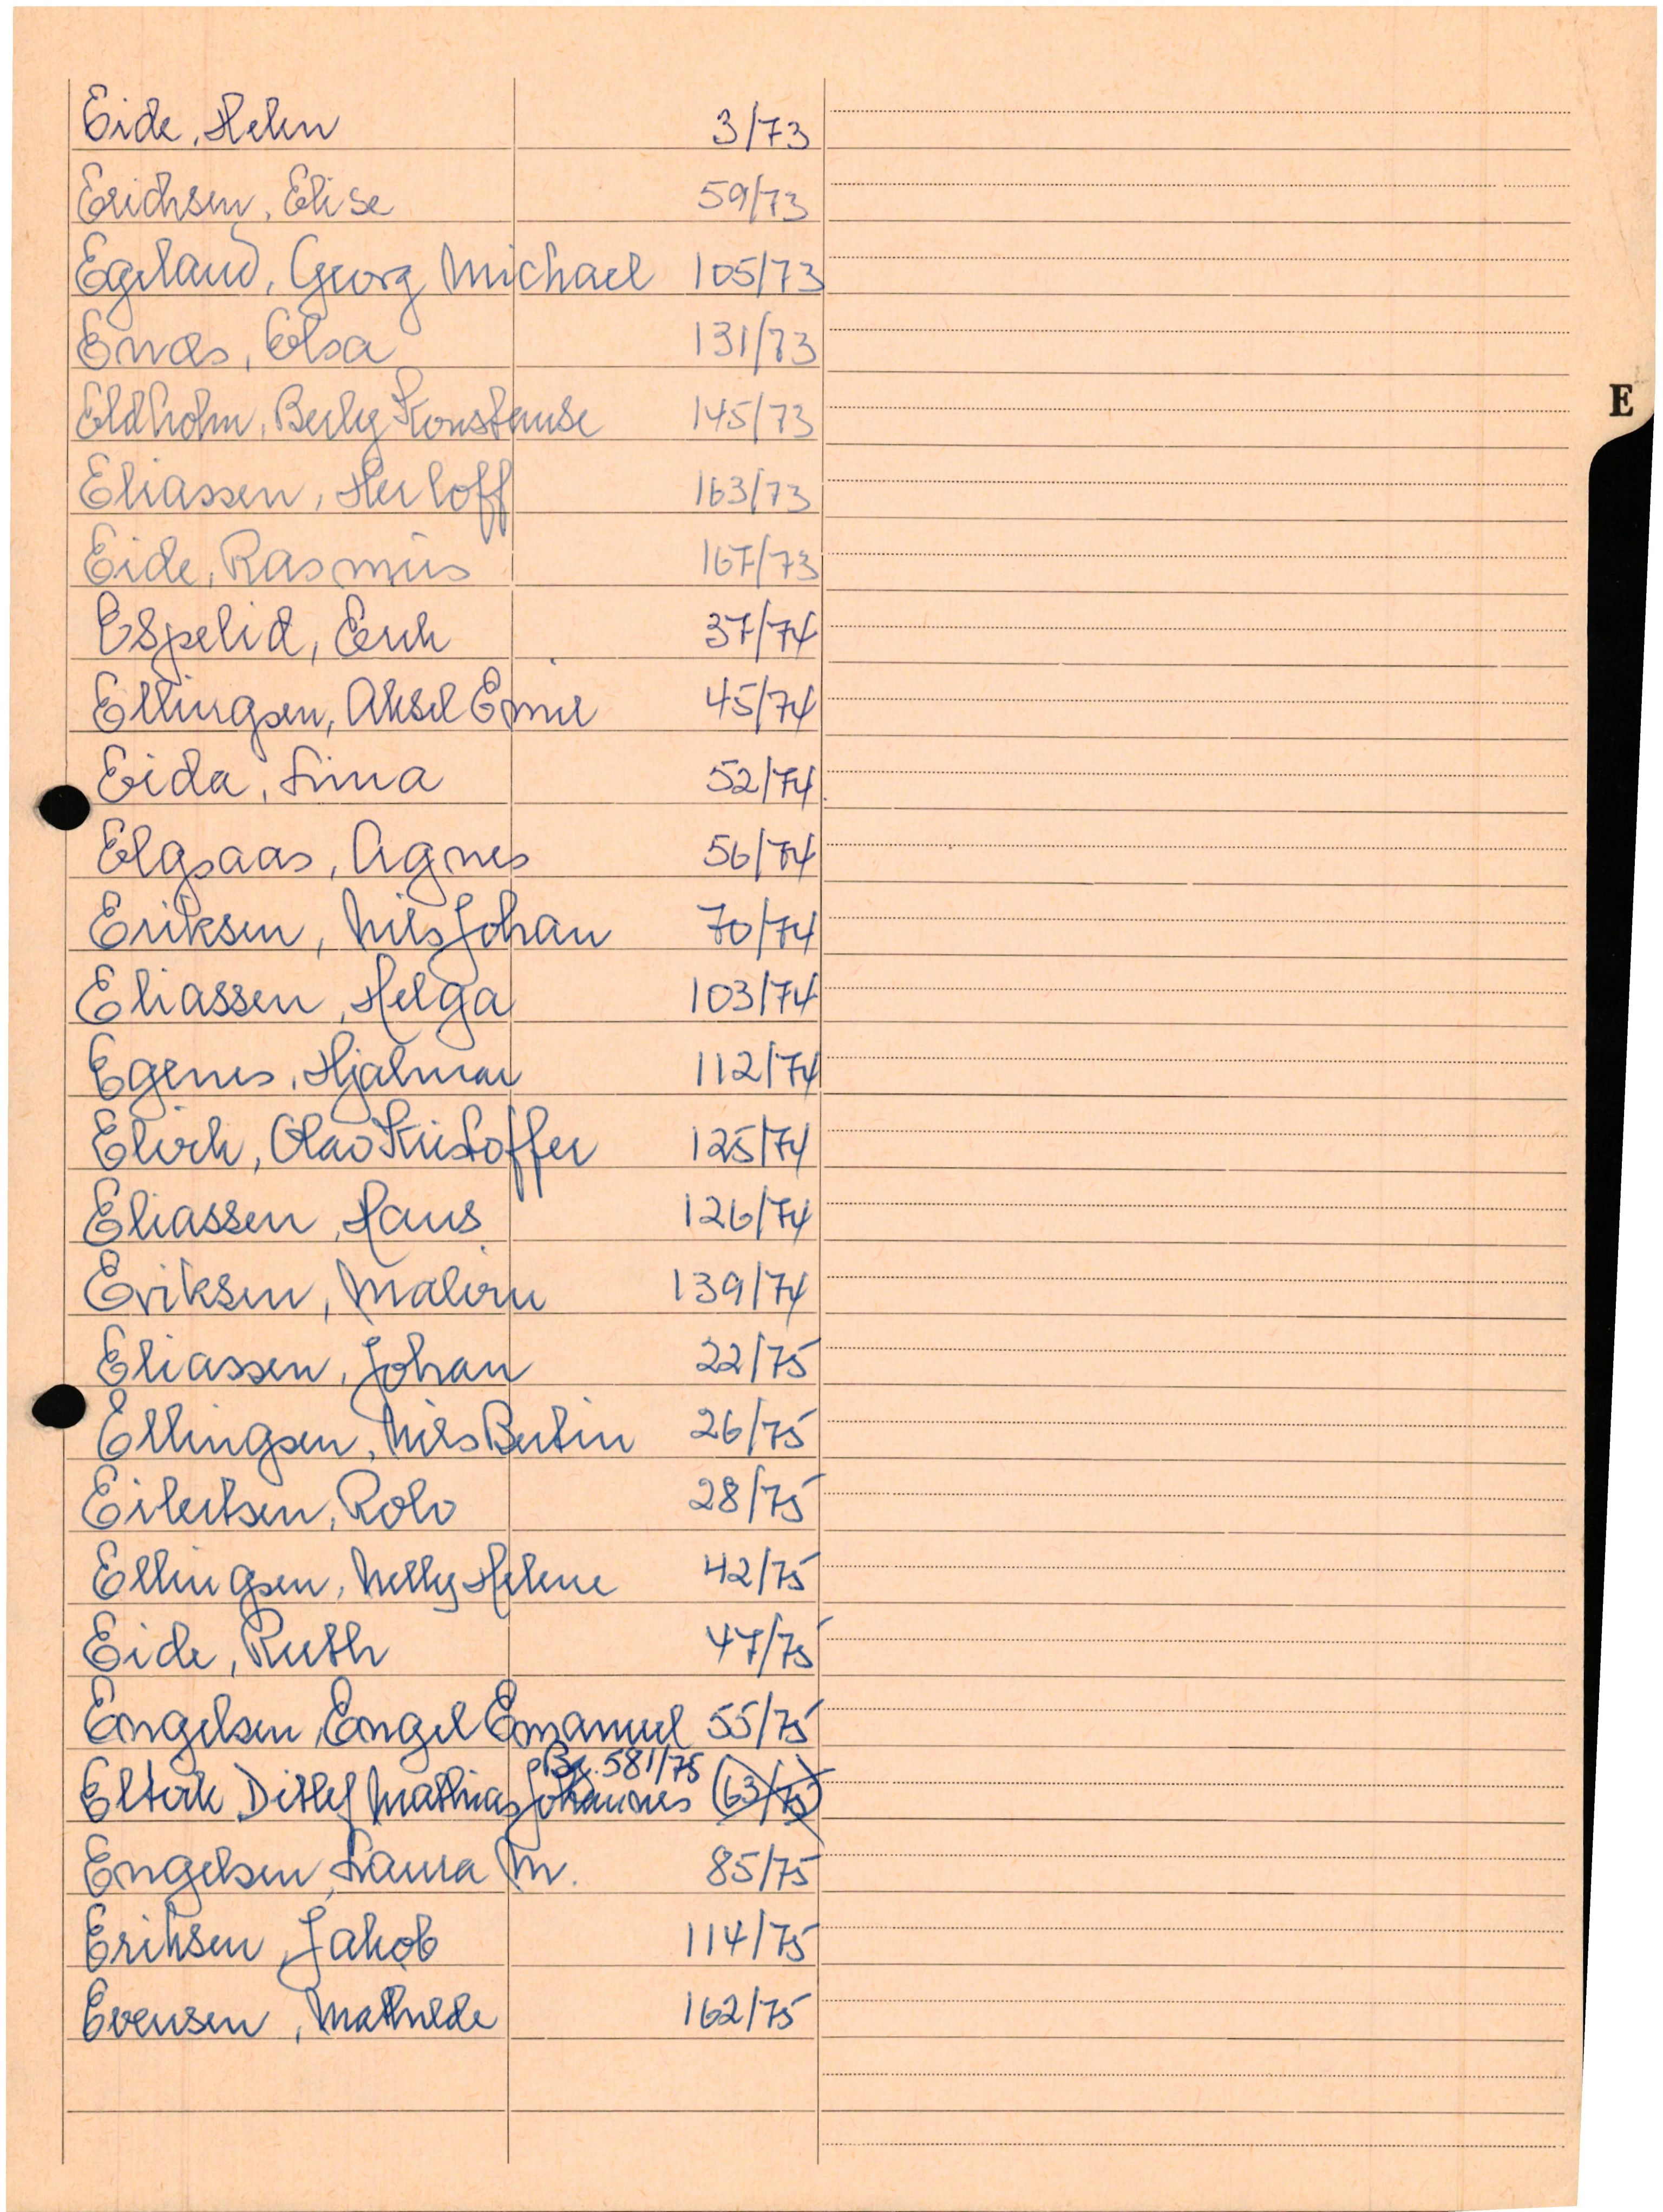 Eide, Helen 3/73
Erichsen, Elise 59/73
Egeland, Georg Michael 105/73
Enæs, Elsa 131/73
Eldholm, Berly Konstanse 145/73
Eliassen, Herloff 163/73
E
Eide, Rasmus 167/73
Espelid, Erik 37/74
Ellingsen, Aksel Emil 45/74
Eida, Lina 52/74
Elgsaas, Agnes 56/74
Eriksen, Nils Johan 70/74
Eliassen, Helga 103/74
Egenes, Hjalmar 112/74
Elvik, Olav Kristoffer 125/74
Eliassen, Hans 126/74
Eriksen, Malvin 139/74
Eliassen, Johan 22/75
Ellingsen, Nils Bertin 26/75
Eilertsen, Rolv 28/75
Ellingsen, Nelly Helene 42/75
Eide, Ruth 47/75
Engelsen, Engel Emanuel 55/75
581/75
Eltvik Ditlef Mathias Johannes (63/75)
Engelsen, Laura M. 85/75
Eriksen, Jakob 114/75
Evensen, Mathilde 162/75